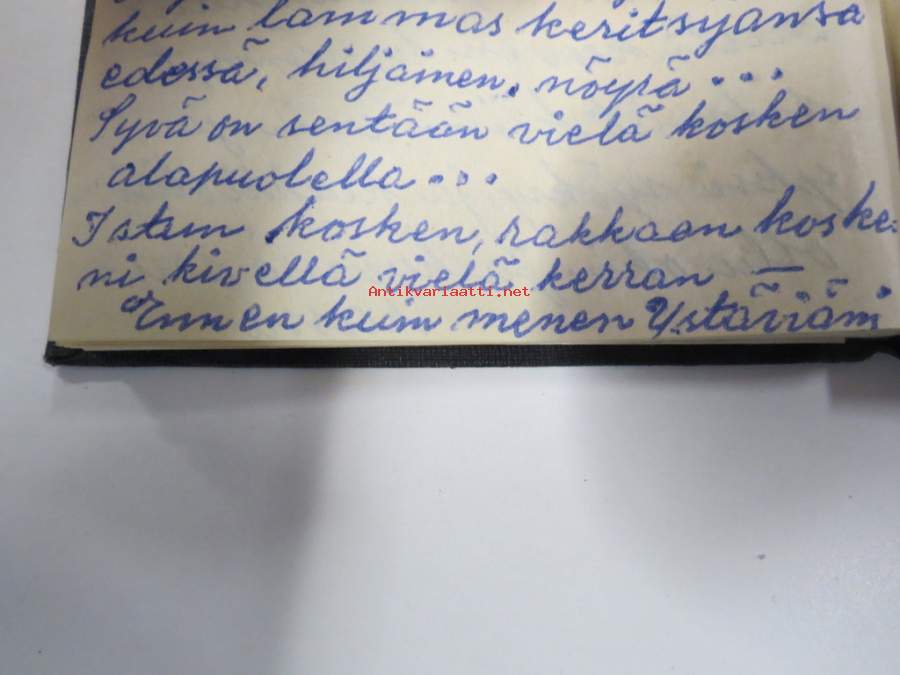 kuin lammas keritsijänsä
edessä, hiljainen, nöyrä...
Syvä on sentään vielä kosken
alapuolella...
Istun kosken, rakkaan koske-
ni kivellä vielä kerran —
Antikvariaatti.net
Ennen kuin menen Ystäviäni